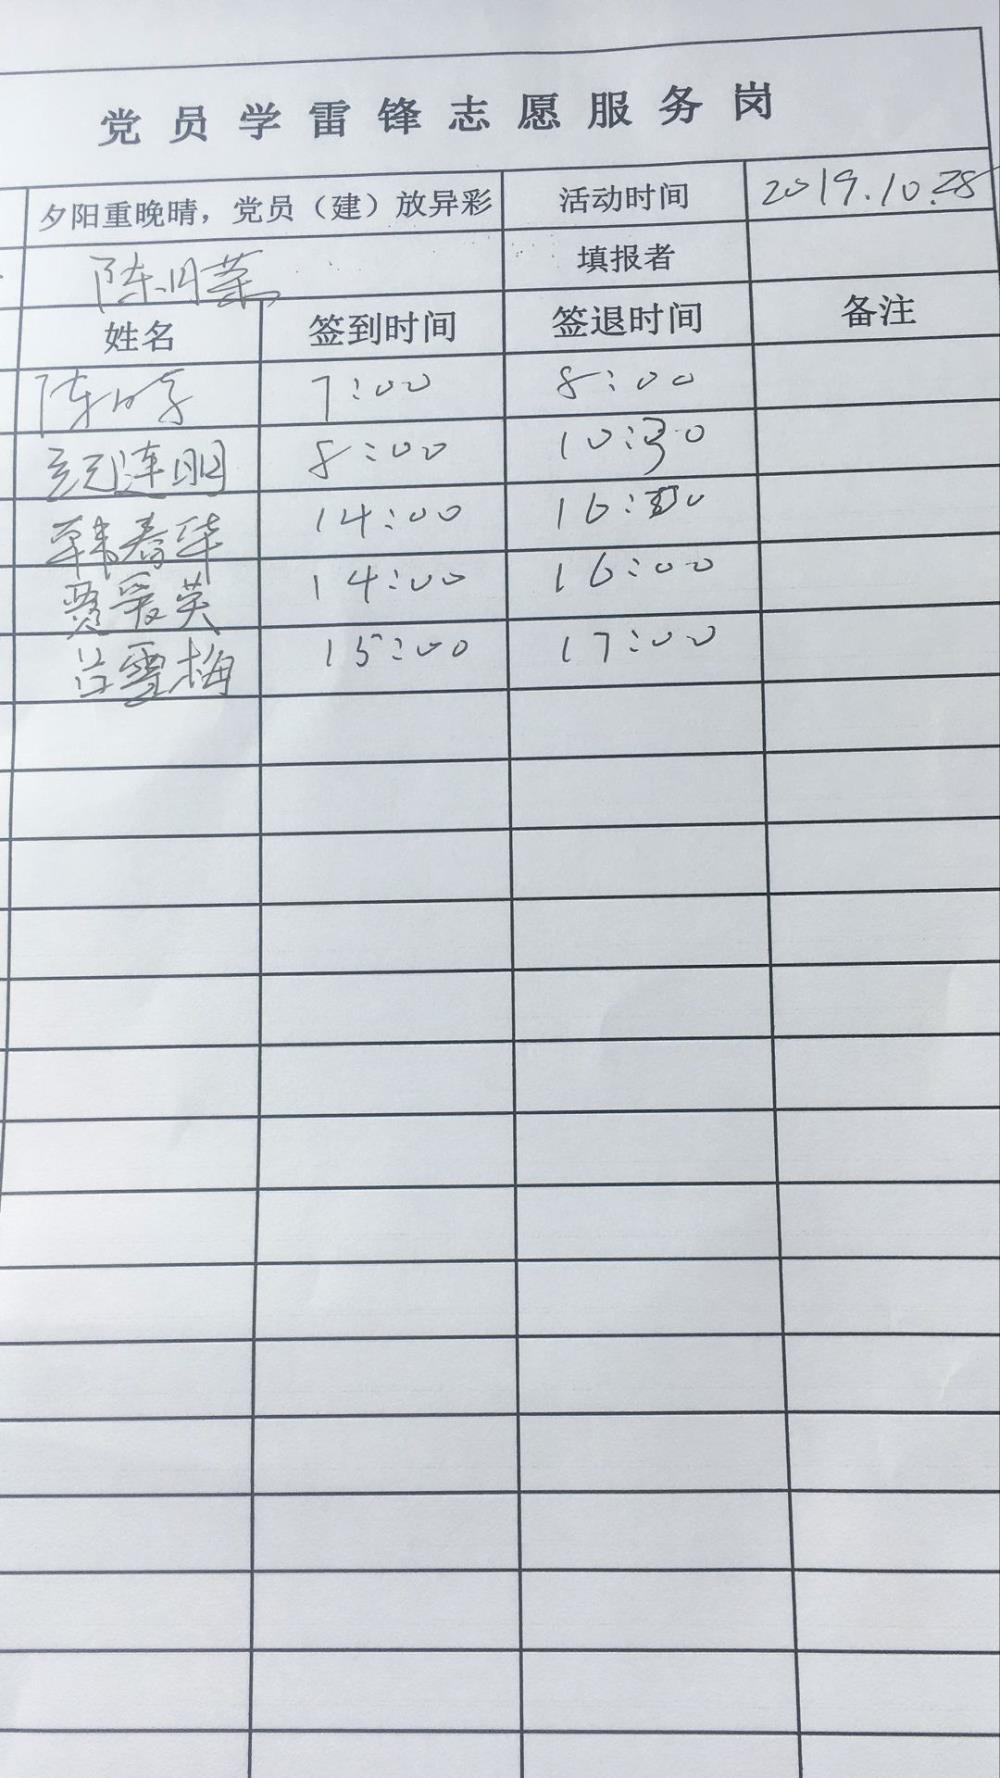 党员学雷锋志愿服务岗
夕阳重晚晴，党员（建）放异彩 活动时间 2019.10.28
陈 填报者
姓名 签到时间 签退时间 备注
陈 7:00 8:00
连明 8:00 10:30
韩春华 14:00 16:00
贾爱英 14:00 16:00
吕雪梅 15:00 17:00